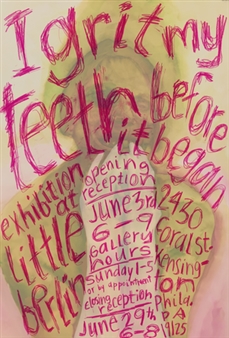 I grit my
teeth before
it began
exhibition
at
little
berlin
opening
reception
June 3rd
6-9
Gallery
hours
Sunday 1-5
or by appointment
closing
reception
June 29th
6-8
2430
coral st.
Kensing-
ton
Phila
PA
19125